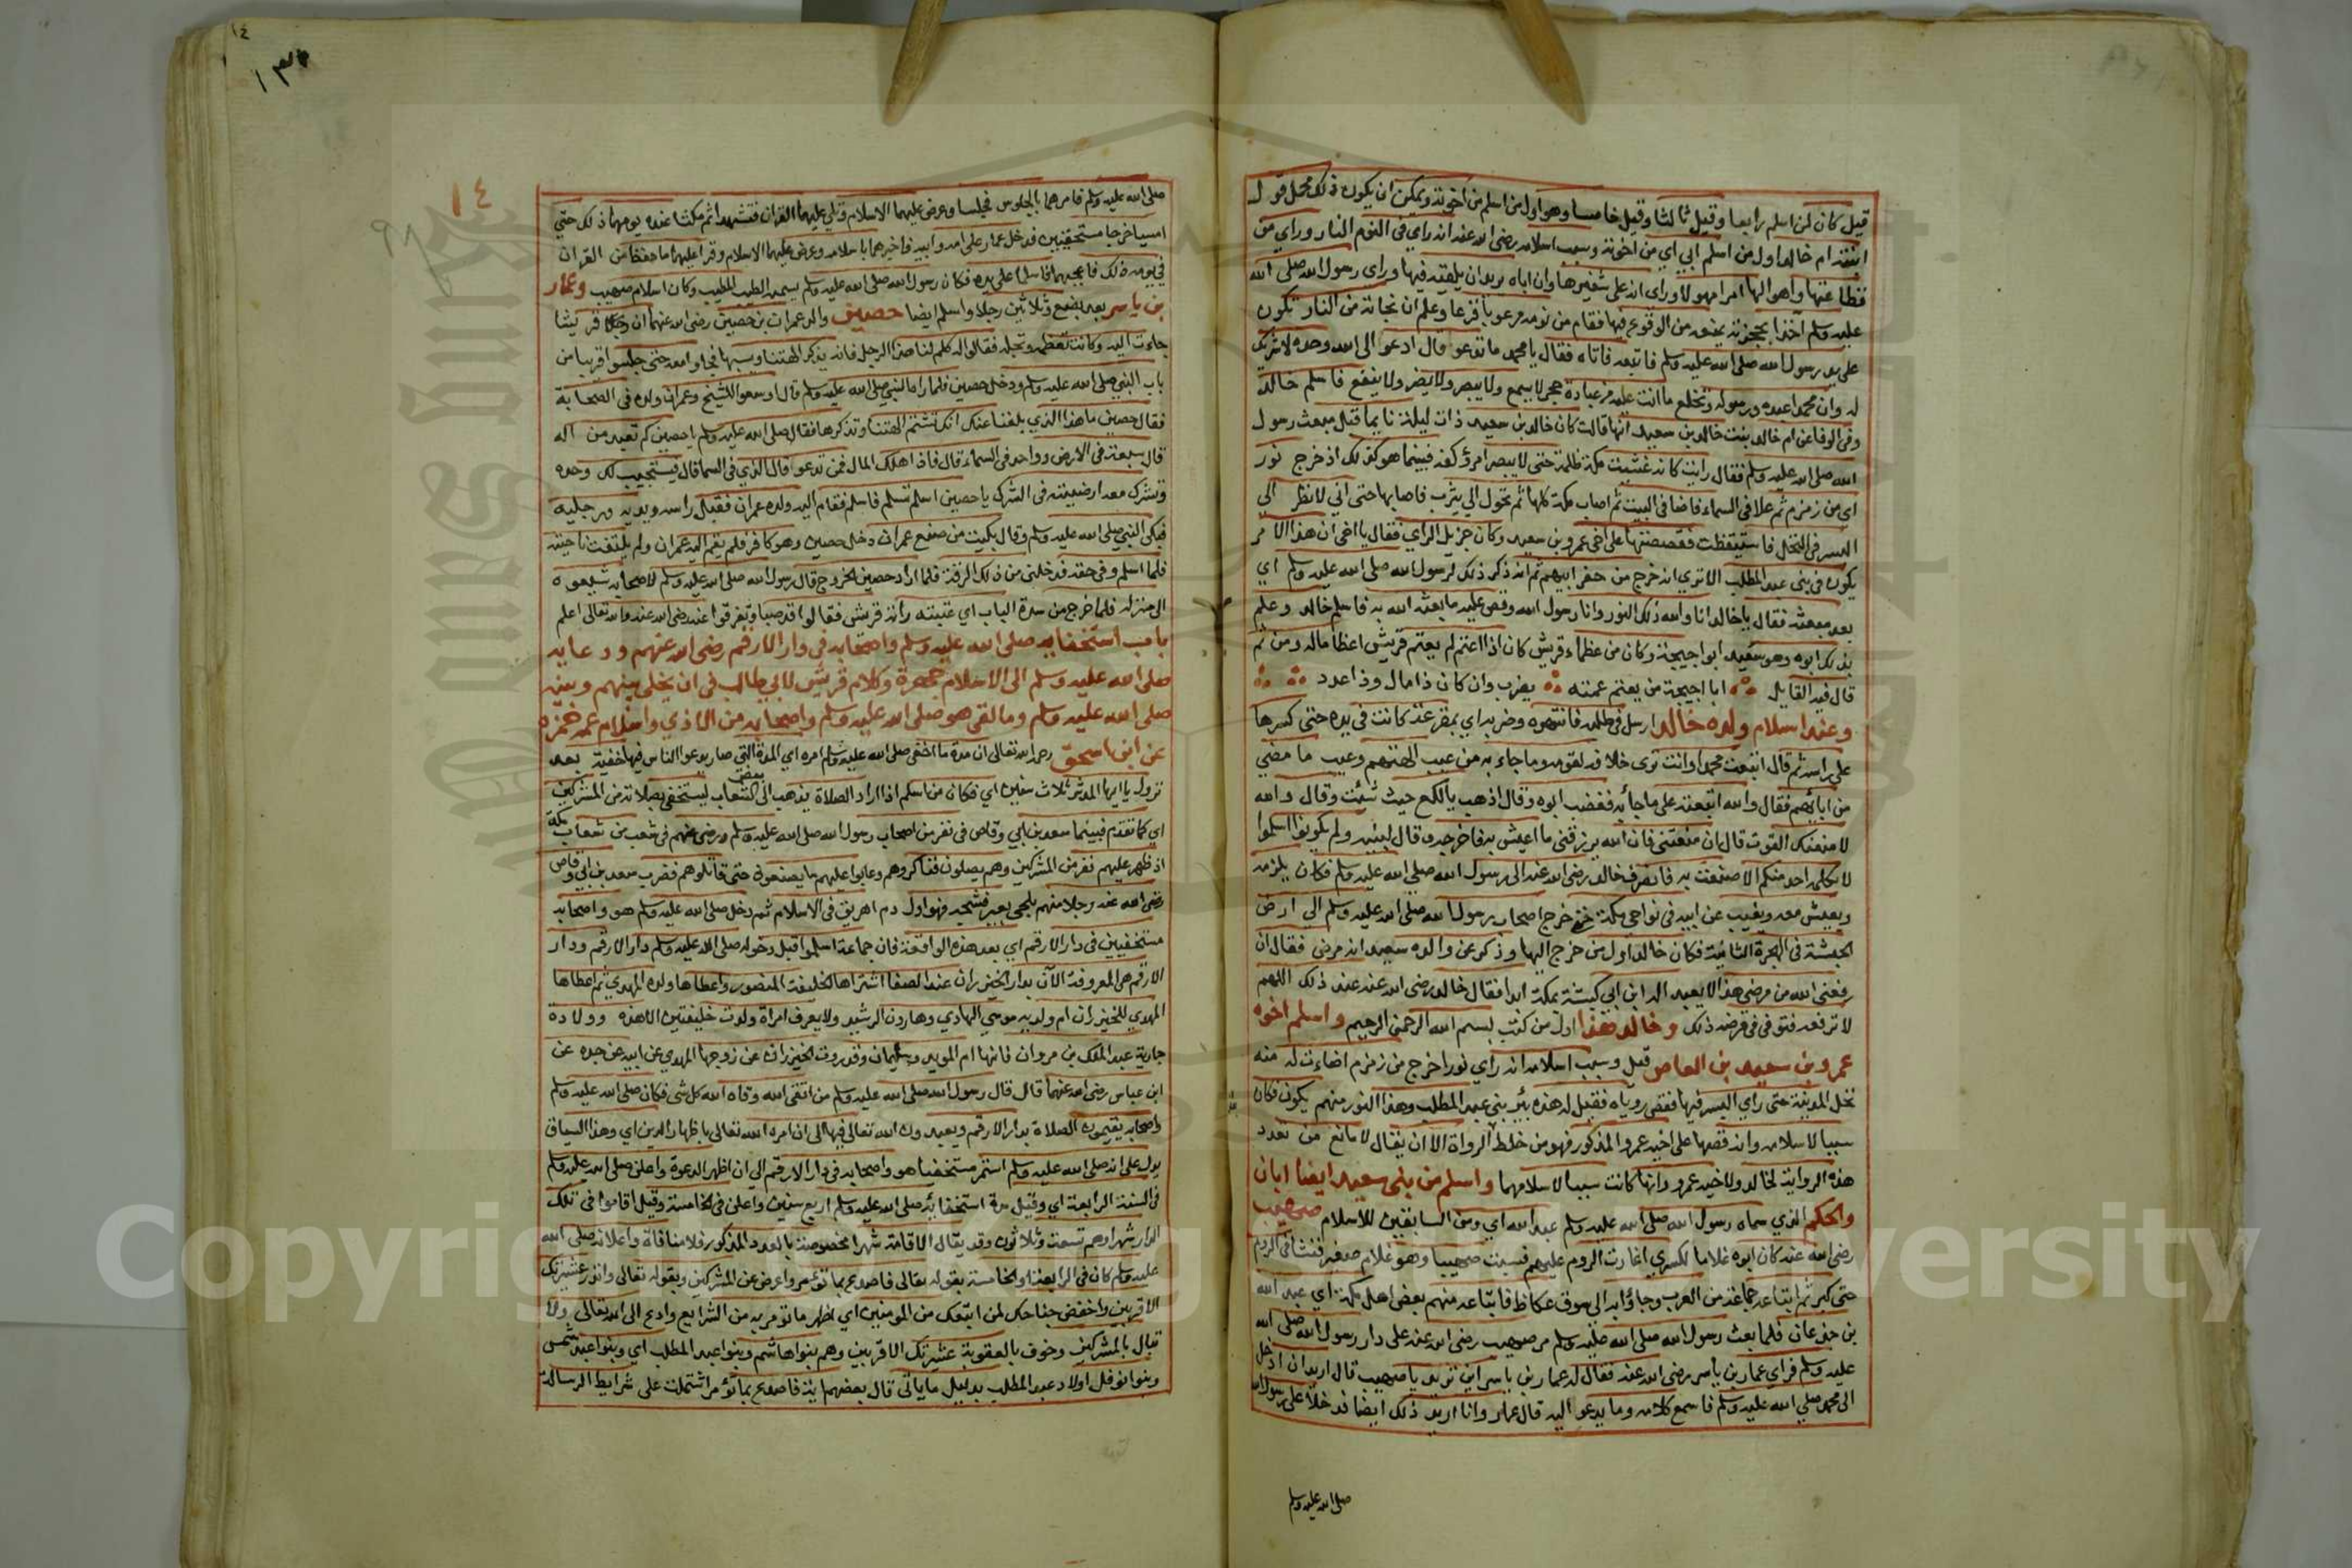 قيل كان لمن اسلم رابعا وقيل ثالثا وقيل خامسا وهو اول من اسلم من اخوته ويمكن ان يكون ذلك محمل قول
ابنته ام خالد اول من اسلم ابي اي من اخوته وسبب اسلامه رضي الله عنه انه راي في النوم النار وراي من
فظاعتها واهوالها امرا مهولا وراي انه على شفيرها وان اباه يريد ان يلقيه فيها وراي رسول الله صلى الله
عليه وسلم آخذا بحجزته يمنعه من الوقوع فيها فقام من نومه مرعوبا فزعا وعلم ان نجاته من النار تكون
على يد رسول الله صلى الله عليه وسلم فاتبعه فاتاه فقال يا محمد ما تدعو قال ادعو الى الله وحده لا شريك
له وان محمدا عبده ورسوله وتخلع ما انت عليه من عبادة حجر لا يسمع ولا يبصر ولا يضر ولا ينفع فاسلم خالد
وفي الوفا عن ام خالد بنت خالد بن سعيد انها قالت كان خالد بن سعيد ذات ليلة نايما قبل مبعث رسول
الله صلى الله عليه وسلم فقال رايت كانه غشيت مكة ظلمة حتى لا يبصر امرؤ كفه فبينما هو كذلك اذ خرج نور
اي من زمزم ثم علا في السماء فاضا في البيت ثم اصاب مكة كلها ثم تحول الي يثرب فاصابها حتى اني لانظر الي
البسر في النخل فاستيقظت فقصصتها على اخي عمرو بن سعيد وكان جزيل الراي فقال يا اخي ان هذا الامر
يكون في بني عبد المطلب الا تري انه خرج من حفر ابيهم ثم انه ذكر ذلك لرسول الله صلى الله عليه وسلم اي
بعد مبعثه فقال يا خالد انا والله ذلك النور وانا رسول الله وقص عليه ما بعثه الله به فاسلم خالد وعلم
بذلك ابوه وهو سعيد ابو احيحة وكان من عظماء قريش كان اذا اعتم لم يعتم قريش اعظاما له ومن ثم
قال فيه القايل ابا احيحة من يعتم عمته يضرب وان كان ذا مال وذا عدد
وعند اسلام ولده خالد ارسل في طلبه فانتهره وضربه اي بمقرعة كانت في يده حتى كسرها
على راسه ثم قال اتبعت محمدا وانت تري خلافه لقومه وما جاء به من عيب الهتهم وعيب ما مضي
من ابائهم فقال والله اتبعته على ما جاء به فغضب ابوه وقال اذهب يا لكع حيث شئت وقال والله
لامنعنك القوت قال ان منعتني فان الله يرزقني ما اعيش به فاخرجه وقال لبنيه ولم يكونوا اسلموا
لا يكلمه احد منكم الا صنعت به فانصرف خالد رضي الله عنه الى رسول الله صلى الله عليه وسلم فكان يلزمه
ويعيش معه ويغيب عن ابيه في نواحي مكة حتى خرج اصحاب رسول الله صلى الله عليه وسلم الي ارض
الحبشة في الهجرة الثانية فكان خالد اول من خرج اليها وذكر عن والده سعيد انه مرض فقال ان
رفعني الله من مرضي هذا لا يعبد اله ابن ابي كبشة بمكة ابدا فقال خالد رضي الله عنه عند ذلك اللهم
لا ترفعه فتوفي في مرضه ذلك وخالد هذا اول من كتب بسم الله الرحمن الرحيم واسلم اخوه
عمرو بن سعيد بن العاص قيل وسبب اسلامه انه راي نورا خرج من زمزم اضاءت له منه
نخل المدينة حتى راي البسر فيها فقص روياه فقيل له هذه بئر بني عبد المطلب وهذا النور منهم يكون فكان
سببا لاسلامه وانه قصها على اخيه عمرو المذكور فهو من خلط الرواة الا ان يقال لا مانع من تعدد
هذه الرواية لخالد ولاخيه عمرو وانها كانت سببا لاسلامهما واسلم من بني سعيد ايضا ابان
والحكم الذي سماه رسول الله صلى الله عليه وسلم عبد الله اي ومن السابقين للاسلام صهيب
رضي الله عنه كان ابوه غلاما لكسري اغارت الروم عليهم فسبت صهيبا وهو غلام صغير فنشا في الروم
حتى كبر ثم ابتاعه جماعة من العرب وجاؤا به الي سوق عكاظ فابتاعه منهم بعض اهل مكة اي عبد الله
بن جدعان فلما بعث رسول الله صلى الله عليه وسلم مر صهيب رضي الله عنه على دار رسول الله صلى الله
عليه وسلم فراي عمار بن ياسر رضي الله عنه فقال له عمار بن ياسر اين تريد يا صهيب قال اريد ان ادخل
الى محمد صلى الله عليه وسلم فاسمع كلامه وما يدعو اليه قال عمار وانا اريد ذلك ايضا فدخلا على رسول الله
صلى الله عليه وسلم
١٤
١٤
٩٨
صلى الله عليه وسلم فامرهما بالجلوس فجلسا وعرض عليهما الاسلام وتلي عليهما القران فتشهدا ثم مكثا عنده يومهما ذلك حتي
امسيا خرجا مستخفيين فدخل عمار على امه وابيه فاخبرهما باسلامه وعرض عليهما الاسلام وقرا عليهما ما حفظ من القران
في يومه ذلك فاعجبهما فاسلما على يده فكان رسول الله صلى الله عليه وسلم يسميه الطيب المطيب وكان اسلام صهيب وعمار
بن ياسر بعد بضع وثلاثين رجلا واسلم ايضا حصين والد عمران بن حصين رضي الله عنهما ان قريشا
جاءت اليه وكانت تعظمه وتجله فقالوا له كلم لنا هذا الرجل فانه يذكر الهتنا ويسبها فجاوا معه حتى جلسوا قريبا من
باب النبي صلى الله عليه وسلم ودخل حصين فلما راه النبي صلى الله عليه وسلم قال اوسعوا للشيخ وعمران ولده في الصحابة
فقال حصين ما هذا الذي بلغنا عنك انك تشتم الهتنا وتذكرها فقال صلى الله عليه وسلم يا حصين كم تعبد من اله
قال سبعة في الارض وواحد في السماء قال فاذا هلك المال فمن تدعو قال الذي في السما قال فيستجيب لك وحده
وتشرك معه ارضيته في الشرك يا حصين اسلم تسلم فاسلم فقام اليه ولده عمران فقبل راسه ويديه ورجليه
فبكى النبي صلى الله عليه وسلم وقال بكيت من صنع عمران دخل حصين وهو كافر فلم يقم اليه عمران ولم يلتفت ناحيته
فلما اسلم وفى حقه فدخلني من ذلك الرقة فلما اراد حصين الخروج قال رسول الله صلى الله عليه وسلم لاصحابه شيعوه
الى منزله فلما خرج من سدة الباب اي عتبته راته قريش فقالوا قد صبا وتفرقوا عنه رضي الله عنه والله تعالى اعلم
باب استخفايه صلى الله عليه وسلم واصحابه في دار الارقم رضي الله عنهم ودعايه
صلى الله عليه وسلم الى الاسلام جهرة وكلام قريش لابي طالب في ان يخلي بينهم وبينه
صلى الله عليه وسلم وما لقي هو صلى الله عليه وسلم واصحابه من الاذي واسلام عمه حمزه
عن ابن اسحق رحمه الله تعالى ان مدة ما اخفى صلى الله عليه وسلم امره اي المدة التي صار يدعو الناس فيها خفية بعد
نزول يا ايها المدثر ثلاث سنين اي فكان من اسلم اذا اراد الصلاة يذهب الى بعض الشعاب ليستخفي بصلاته من المشركين
اي كما تقدم فبينما سعد بن ابي وقاص في نفر من اصحاب رسول الله صلى الله عليه وسلم ورضي عنهم في شعب من شعاب مكة
اذ ظهر عليهم نفر من المشركين وهم يصلون فناكروهم وعابوا عليهم ما يصنعون حتى قاتلوهم فضرب سعد بن ابي وقاص
رضي الله عنه رجلا منهم بلحي بعير فشجه فهو اول دم اهريق في الاسلام ثم دخل صلى الله عليه وسلم هو واصحابه
مستخفيين في دار الارقم اي بعد هذه الواقعة فان جماعة اسلموا قبل دخوله صلى الله عليه وسلم دار الارقم ودار
الارقم هي المعروفة الآن بدار الخيزران عند الصفا اشتراها الخليفة المنصور واعطاها ولده المهدي ثم اعطاها
المهدي للخيزران ام ولديه موسي الهادي وهارون الرشيد ولا يعرف امراة ولدت خليفتين الا هذه وولادة
جارية عبد الملك بن مروان فانها ام الوليد وسليمان وقد روت الخيزران عن زوجها المهدي عن ابيه عن جده عن
ابن عباس رضي الله عنهما قال قال رسول الله صلى الله عليه وسلم من اتقى الله وقاه الله كل شي فكان صلى الله عليه وسلم
واصحابه يقيمون الصلاة بدار الارقم ويعبدون الله تعالى فيها الى ان امره الله تعالى باظهار الدين اي وهذا السياق
يدل على انه صلى الله عليه وسلم استمر مستخفيا هو واصحابه في دار الارقم الي ان اظهر الدعوة واعلن صلى الله عليه وسلم
في السنة الرابعة اي وقيل مدة استخفائه صلى الله عليه وسلم اربع سنين واعلن في الخامسة وقيل اقاموا في تلك
الدار شهرا وهم تسعة وثلاثون وقد يقال الاقامة شهرا مخصوصة بالعدد المذكور فلا منافاة واعلانه صلى الله
عليه وسلم كان في الرابعة او الخامسة بقوله تعالى فاصدع بما تؤمر واعرض عن المشركين وبقوله تعالى وانذر عشيرتك
الاقربين واخفض جناحك لمن اتبعك من المومنين اي اظهر ما تومر به من الشرايع وادع الى الله تعالى ولا
تبال بالمشركين وخوف بالعقوبة عشيرتك الاقربين وهم بنوا هاشم وبنوا عبد المطلب اي وبنوا عبد شمس
وبنوا نوفل اولاد عبد المطلب بدليل ما ياتي قال بعضهم اية فاصدع بما تؤمر اشتملت على شرايط الرسالة
Copyright © King Saud University